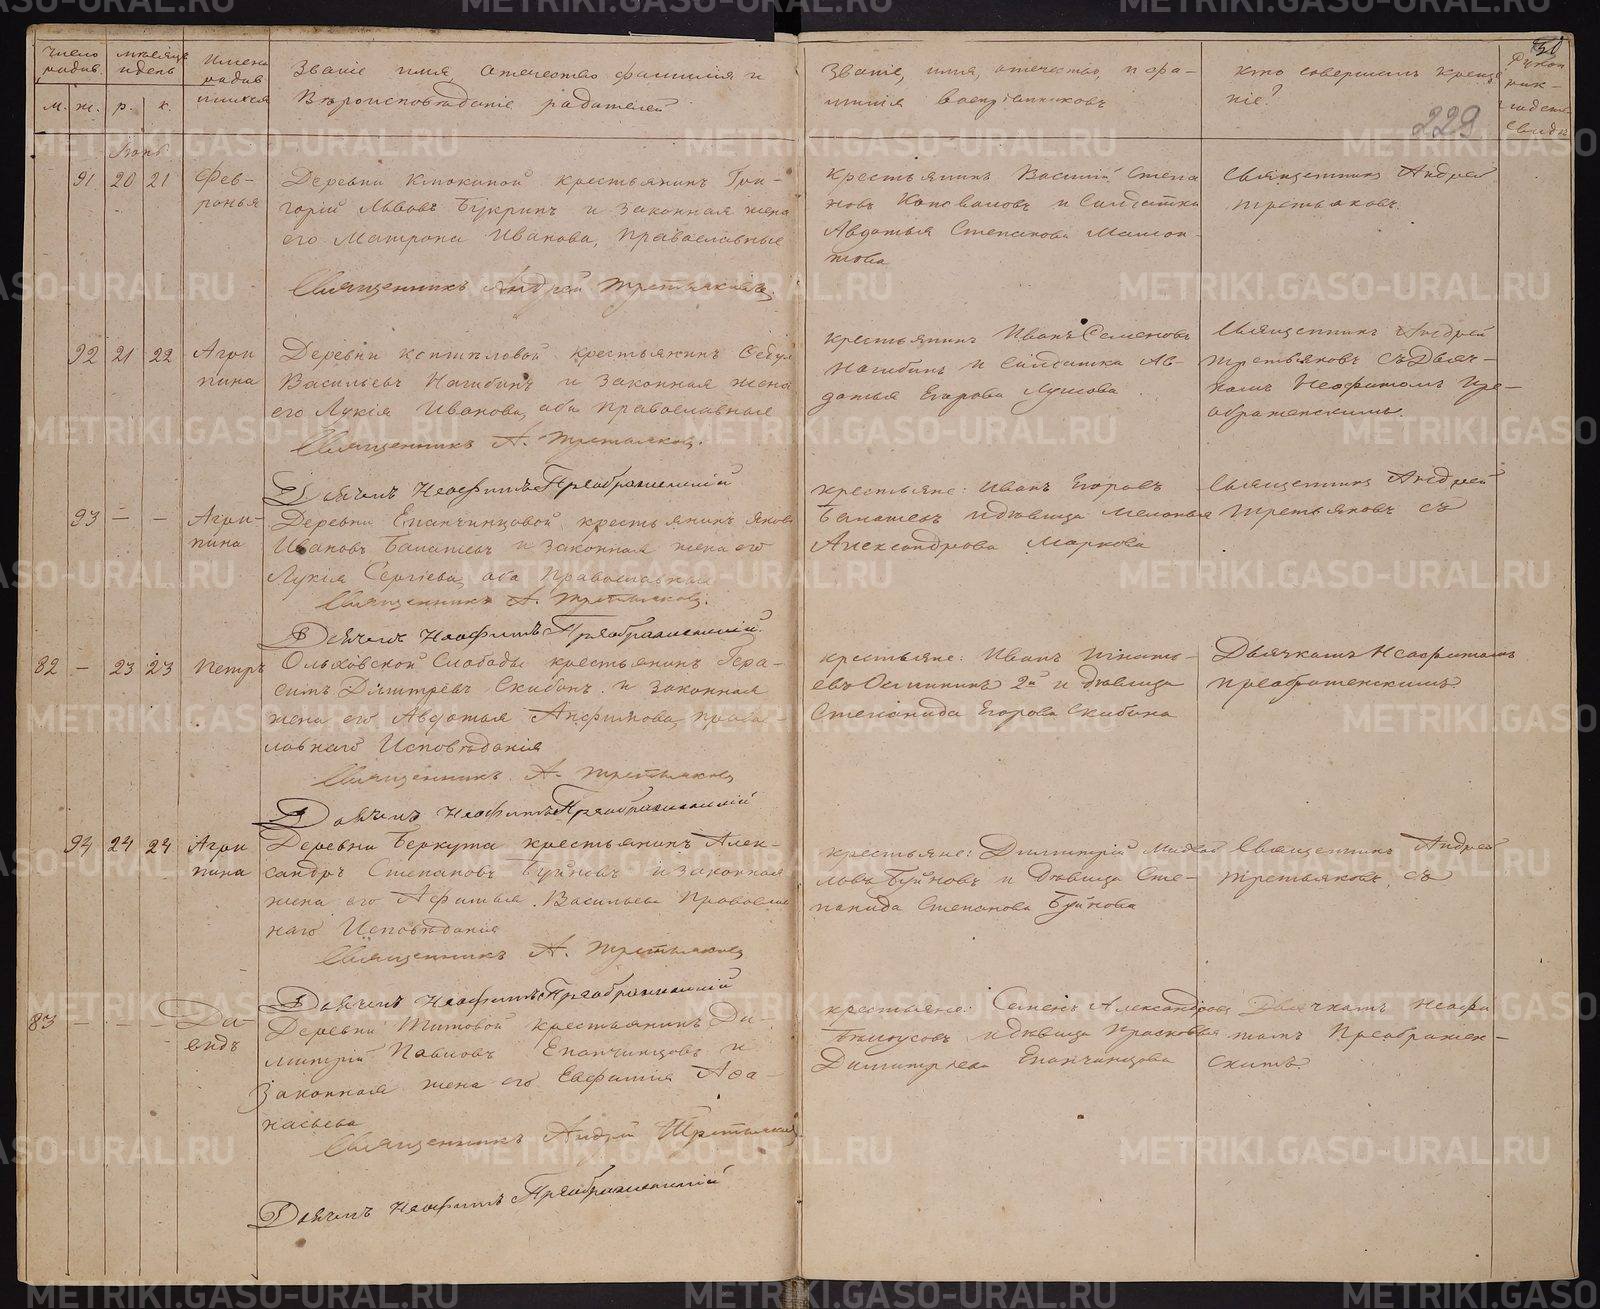 Число родив.
мѣсяцъ и день
Имена родив шихся
Званіе имя, отечество фамилія и
Вѣроисповѣданіе родителей
м. ж. р. к.
Званіе, имя, отечество, и фа-
милія воспріемниковъ
кто совершалъ креще
ніе?
229
30
91 20 21 Фев-
ронья
Деревни Клюкиной крестьянинъ Гри-
горій Львовъ Букринъ и законная жена
его Матрона Иванова, православные
Священникъ Андрей Третьяковъ.
крестьянинъ Василій Степа
новъ и Солдатка
Авдотья Степанова Мамон-
това
Священникъ Андрей
Третьяковъ.
92 21 22 Агри
пина
Деревни крестьянинъ
Васильевъ Нагибинъ и законная жена
его Лукія Иванова, оба православные
Священникъ А. Третьяковъ.
Дьячекъ Неофитъ Преображенскій
крестьянинъ Иванъ Семеновъ
Нагибинъ и Солдатка Ав-
дотья Егорова
Священникъ Андрей
Третьяковъ съ Дьяч-
комъ Неофитомъ Пре-
ображенскимъ.
93 — — Агри-
пина
Деревни Епанчинцовой крестьянинъ Яковъ
Ивановъ Балашевъ и законная жена его
Лукія Сергіева, оба Православные
Священникъ А. Третьяковъ.
Дьячекъ Неофитъ Преображенскій.
крестьяне: Иванъ Егоровъ
Балашевъ и дѣвица Меланья
Александрова Маркова
Священникъ Андрей
Третьяковъ съ
82 — 23 23 Петръ
Ольховской Слободы крестьянинъ Гера-
симъ Дмитревъ Скибинъ и законная
жена его Авдотья Анфимова, правос-
лавнаго Исповѣданія
Священникъ А. Третьяковъ
Дьячекъ Неофитъ Преображенскій
крестьяне: Иванъ Игнать-
евъ 2й и дѣвица
Степанида Егорова Скибина
Дьячкомъ Неофитомъ
Преображенскимъ.
94 24 24 Агри
пина
Деревни Беркута крестьянинъ Алек-
сандръ Степановъ Буйновъ и законная
жена его Васильева Православ
наго Исповѣданія
Священникъ А. Третьяковъ
Дьячекъ Неофитъ Преображенскій
крестьяне: Димитрій Михай
ловъ Буйновъ и дѣвица Сте-
панида Степанова Буйнова
Священникъ Андрей
Третьяковъ съ
83 — — — Да
видъ
Деревни Титовой крестьянинъ Ди
митрій Павловъ Епанчинцовъ и
законная жена его Евфимія Афа-
насьева
Священникъ Андрей Третьяковъ
Дьячекъ Неофитъ Преображенскій
крестьяне: Семенъ Александровъ
и дѣвица Прасковья
Димитріева Епанчинцова
Дьячкомъ Неофи
томъ Преображен-
скимъ.
METRIKI.GASO-URAL.RU